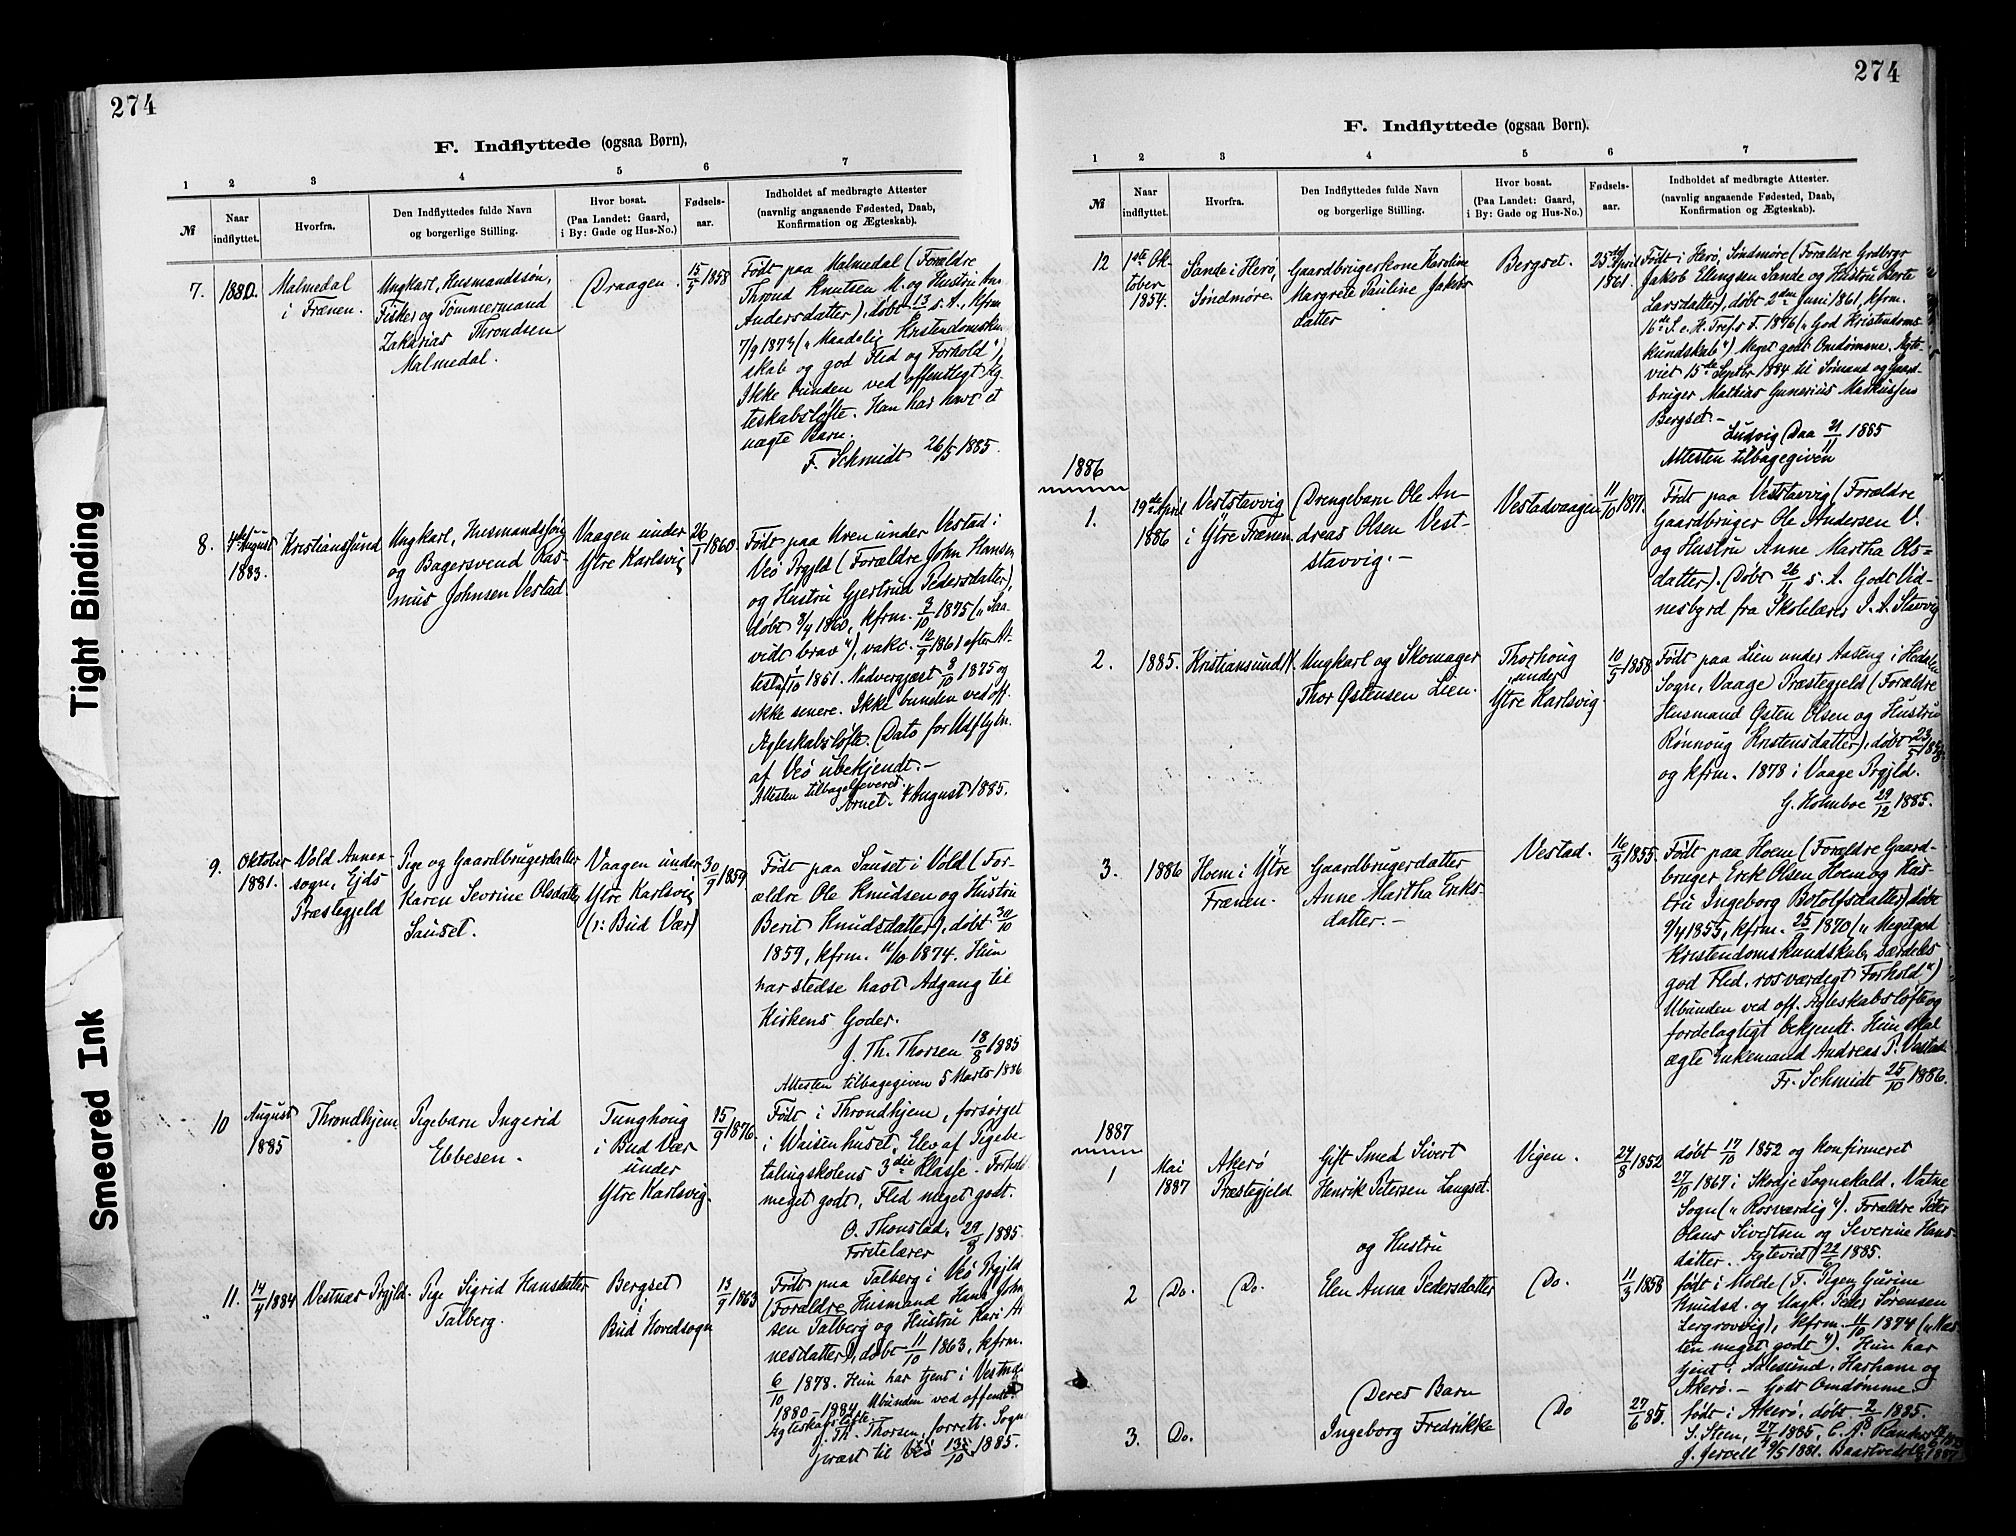 274
F. Indflyttede (ogsaa Børn).
1 2 3 4 5 6 7
№
Naar indflyttet.
Hvorfra.
Den Indflyttedes fulde Navn
og borgerlige Stilling.
Hvor bosat.
(Paa Landet: Gaard,
i By: Gade og Hus-No.)
Fødsels-
aar.
Indholdet af medbragte Attester
(navnlig angaaende Fødested, Daab,
Konfirmation og Ægteskab).
7. 1880.
Malmedal
i Frænen.
Ungkarl, Husmandssøn,
Fisker og Tømmermand
Zakarias Throndsen
Malmedal.
Draagen.
15/5 1858
Født paa Malmedal (Forældre
Thrond Knutsen M. og Hustru An.
Andersdatter), døbt 13/6 s. A., kfrm.
7/9 1873 („Maadelig Kristendomskun
skab og god Flid og Forhold")
Ikke bunden ved offentligt Æg
teskabsløfte. Han har havt et
uægte Barn.
F. Schmidt 26/5 1885.
8.
4de August
1883.
Kristianssund
Ungkarl, Husmandssøn
og Bagersvend Ras-
mus Johnsen Vestad.
Vaagen under
Ytre Karlsvig
26/1 1860.
Født paa Hven under Vestad i
Veø Prgjld (Forældre John Hansen
og Hustru Gjertrud Pedersdatter),
døbt 8/4 1860, kfrm. 3/10 1875 („Saa-
vidt brav"), vakc. 12/9 1861 efter At-
test af 1/10 1861. Nadvergjæst 8/10 1875 og
ikke senere. Ikke bunden ved off.
Ægteskabsløfte. Dato for Udflytn.
af Veø ubekjendt.-
Attesten tilbageleveret.
Arnet. 4 August 1885.
9.
Oktober
1881.
Vold Annex-
sogn, Ejds
Præstegjeld
Pige og Gaardbrugerdatter
Karen Sevrine Olsdatter
Sauset.
Vaagen under
Ytre Karlsvig
(i: Bud Vær)
30/9 1859
Født paa Sauset i Vold (For-
ældre Ole Knudsen og Hustru
Berit Knudsdatter), døbt 30/10
1859, kfrm. 11/10 1874. Hun
har stedse havt Adgang til
Kirkens Goder.
J. Th. Thorsen 18/8 1885
Attesten tilbagegiven 5 Marts 1886
10
August
1885
Throndhjem
Pigebarn Ingerid
Ebbesen.
Tunghoug
i Bud Vær
under
Ytre Karlsvig.
15/9 1876
Født i Throndhjem, forsørget
i Waisenhuset, Elev af Pigebe-
talingskolens 3die Klasse. Forhold
meget godt, Flid meget godt.
O. Thonstad, 29/8 1885.
Førstelærer
11.
14/4 1884
Vestnæs Prgjld.
Pige Sigrid Hansdatter
Talberg.
Bergset
i
Bud Hovedsogn
13/9 1863
Født paa Talberg i Veø Prgjld
(Forældre Husmand Hans John
sen Talberg og Hustru Kari Ar
nesdatter), døbt 11/10 1863, kfrm.
6/10 1878. Hun har tjent i Vestnæs
1880-1884. Ubunden ved offentl.
Ægteskabsløfte.
J. Th. Thorsen, forrett. Sogne
præst til Veø 13/10 1885.
274
F. Indflyttede (ogsaa Børn).
1 2 3 4 5 6 7
№
Naar
indflyttet.
Hvorfra.
Den Indflyttedes fulde Navn
og borgerlige Stilling.
Hvor bosat.
(Paa Landet: Gaard,
i By: Gade og Hus-No.)
Fødsels-
aar.
Indholdet af medbragte Attester.
(navnlig angaaende Fødested, Daab,
Konfirmation og Ægteskab).
12
1ste Ok-
tober
1854.
Sande i Herø,
Søndmøre.
Gaardbrugerkone Karoline
Margrete Pauline Jakobs
datter
Bergset.
25de April
1861.
Født i Herø, Søndmøre (Forældre Grdbrgr
Jakob Ellingsen Sande og Hustru Berte
Larsdatter), døbt 2den Juni 1861, kfrm.
16de S. e. H. Tref. F. 1876 („God Kristendoms
kundskab") Meget godt Omdømme. Ægte-
viet 15de Septbr 1884 til Sømand og Gaard-
bruger Mathias Gunerius Markussen
Bergset.-
Ludvig Daa 21/11 1885
Attesten tilbagegiven
1886
1.
19de April
1886
Veststavvig
i Ytre Frænen
Drengebarn Ole An-
dreas Olsen Vest-
stavvig.-
Vestadvaagen
11/10 1871.
Født paa Veststavvig (Forældre
Gaardbruger Ole Andersen V.
og Hustru Anne Martha Ols-
datter). Døbt 26/11 s. A. Godt Vid-
nesbyrd fra Skolelærer P. A. Stavvig
2. 1885.
Kristiansund N.
Ungkarl og Skomager
Thor Østensen Lien.
Thorhoug
under
Ytre Karlsvig.
10/5 1858
Født paa Lien under Aaseng i Hedalen
Sogn, Vaage Præstegjeld (Forældre
Husmand Østen Olsen og Hustru
Rønnoug Kristensdatter), døbt 23/5 1858
og kfrm. 1878 i Vaage Prgjld.
G. Holmboe 29/12 1885.
3. 1886
Hoem i Ytre
Frænen.
Gaardbrugerdatter
Anne Martha Eriks-
datter.-
Vestad.
16/3 1855.
Født paa Hoem (Forældre Gaard-
bruger Erik Olsen Hoem og Hus-
tru Ingeborg Botolfsdatter) døbt
9/4 1855, kfrm. 25/9 1870 („Meget god
Kristendomskundskab, Særdeles
god Flid, rosværdigt Forhold")
Ubunden ved off. Ægteskabsløfte og
fordelagtigt bekjendt. Hun skal
ægte Enkemand Andreas P. Vestad.
Fr. Schmidt 25/10 1886.
1887
1
Mai
1887
Akerø
Præstegjeld.
Gift Smed Sivert
Henrik Petersen Langset.
og Hustru
Vigen.
24/8 1852
døbt 17/10 1852 og konfirmeret
27/10 1867 i Skodje Sognekald, Vatne
Sogn („Rosværdig"). Forældre Peter
Olaus Sivertsen og Severine Hans-
datter. Ægteviet 22/6 1885.
2 Do. Do.
Elen Anna Pedersdatter
Do.
11/3 1858
født i Molde (F. Pigen Gurine
Knudsd. og Ungk. Peder Sørensen
Lergrovvig), kfrm. 11/10 1874 („Næs
ten meget godt"). Hun har
tjent i Aalesund, Harham og
Akerø.- Godt Omdømme.
3. Do.
Deres Barn
Ingeborg Fredrikke
Do
27/6 85
født i Akerø, døbt 2/8 1885.
S. Steen, 27/4 1885, C. A.
J. Jervell 9/5 1881.